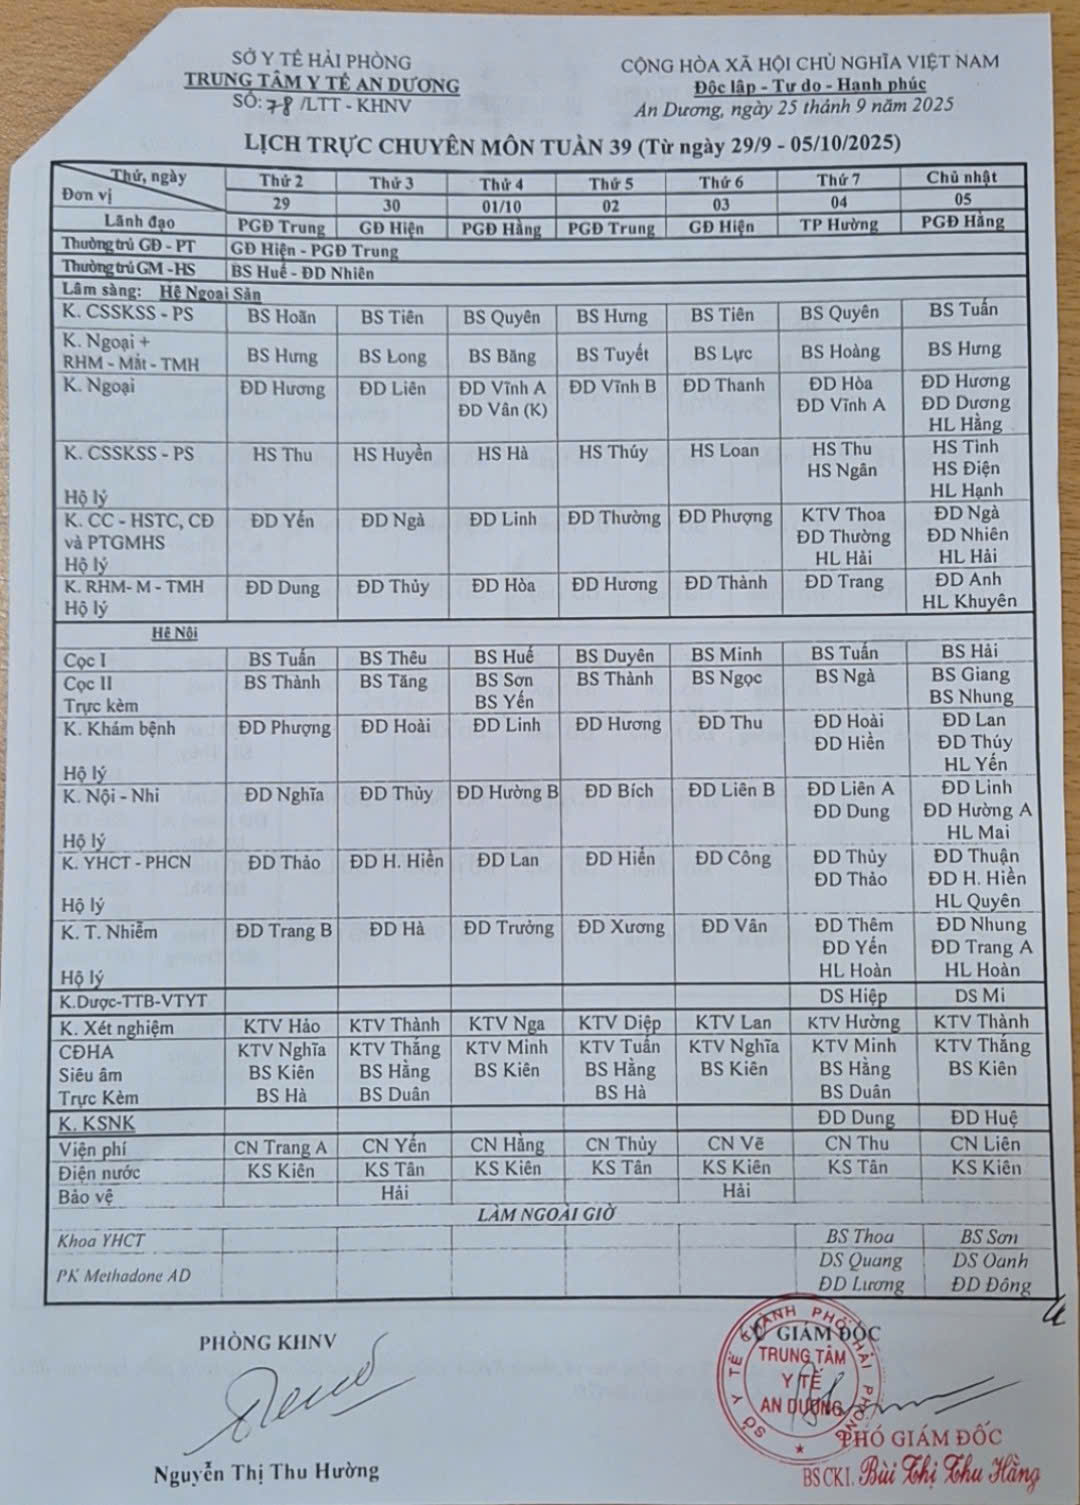 SỞ Y TẾ HẢI PHÒNG
TRUNG TÂM Y TẾ AN DƯƠNG
SỐ: 78 /LTT - KHNV
CỘNG HÒA XÃ HỘI CHỦ NGHĨA VIỆT NAM
Độc lập - Tự do - Hạnh phúc
An Dương, ngày 25 tháng 9 năm 2025
LỊCH TRỰC CHUYÊN MÔN TUẦN 39 (Từ ngày 29/9 - 05/10/2025)
Thứ, ngày Thứ 2 Thứ 3 Thứ 4 Thứ 5 Thứ 6 Thứ 7 Chủ nhật
Đơn vị 29 30 01/10 02 03 04 05
Lãnh đạo PGĐ Trung GĐ Hiện PGĐ Hằng PGĐ Trung GĐ Hiện TP Hường PGĐ Hằng
Thường trú GĐ - PT GĐ Hiện - PGĐ Trung
Thường trú GM - HS BS Huế - ĐD Nhiên
Lâm sàng: Hệ Ngoại Sản
K. CSSKSS - PS BS Hoãn BS Tiên BS Quyên BS Hưng BS Tiên BS Quyên BS Tuấn
K. Ngoại +
RHM - Mắt - TMH BS Hưng BS Long BS Băng BS Tuyết BS Lực BS Hoàng BS Hưng
K. Ngoại ĐD Hương ĐD Liên ĐD Vĩnh A ĐD Vĩnh B ĐD Thanh ĐD Hòa ĐD Hương
ĐD Vân (K) ĐD Vĩnh A ĐD Dương
HL Hằng
K. CSSKSS - PS HS Thu HS Huyền HS Hà HS Thúy HS Loan HS Thu HS Tình
HS Ngân HS Điện
Hộ lý HL Hạnh
K. CC - HSTC, CĐ ĐD Yến ĐD Ngà ĐD Linh ĐD Thường ĐD Phượng KTV Thoa ĐD Ngà
và PTGMHS ĐD Thường ĐD Nhiên
Hộ lý HL Hải HL Hải
K. RHM- M - TMH ĐD Dung ĐD Thủy ĐD Hòa ĐD Hương ĐD Thành ĐD Trang ĐD Anh
Hộ lý HL Khuyên
Hệ Nội
Cọc I BS Tuấn BS Thêu BS Huế BS Duyên BS Minh BS Tuấn BS Hải
Cọc II BS Thành BS Tăng BS Sơn BS Thành BS Ngọc BS Ngà BS Giang
Trực kèm BS Yến BS Nhung
K. Khám bệnh ĐD Phượng ĐD Hoài ĐD Linh ĐD Hương ĐD Thu ĐD Hoài ĐD Lan
ĐD Hiền ĐD Thúy
Hộ lý HL Yến
K. Nội - Nhi ĐD Nghĩa ĐD Thủy ĐD Hường B ĐD Bích ĐD Liên B ĐD Liên A ĐD Linh
ĐD Dung ĐD Hường A
Hộ lý HL Mai
K. YHCT - PHCN ĐD Thảo ĐD H. Hiền ĐD Lan ĐD Hiến ĐD Công ĐD Thủy ĐD Thuận
ĐD Thảo ĐD H. Hiền
Hộ lý HL Quyên
K. T. Nhiễm ĐD Trang B ĐD Hà ĐD Trưởng ĐD Xương ĐD Vân ĐD Thêm ĐD Nhung
ĐD Yến ĐD Trang A
Hộ lý HL Hoàn HL Hoàn
K.Dược-TTB-VTYT DS Hiệp DS Mi
K. Xét nghiệm KTV Hảo KTV Thành KTV Nga KTV Diệp KTV Lan KTV Hường KTV Thành
CĐHA KTV Nghĩa KTV Thắng KTV Minh KTV Tuấn KTV Nghĩa KTV Minh KTV Thắng
Siêu âm BS Kiên BS Hằng BS Kiên BS Hằng BS Kiên BS Hằng BS Kiên
Trực Kèm BS Hà BS Duân BS Hà BS Duân
K. KSNK ĐD Dung ĐD Huệ
Viện phí CN Trang A CN Yến CN Hằng CN Thủy CN Vẽ CN Thu CN Liên
Điện nước KS Kiên KS Tân KS Kiên KS Tân KS Kiên KS Tân KS Kiên
Bảo vệ Hải Hải
LÀM NGOÀI GIỜ
Khoa YHCT BS Thoa BS Sơn
PK Methadone AD DS Quang DS Oanh
ĐD Lương ĐD Đông
PHÒNG KHNV
GIÁM ĐỐC
SỞ Y TẾ THÀNH PHỐ HẢI PHÒNG
TRUNG TÂM
Y TẾ
AN DƯƠNG
PHÓ GIÁM ĐỐC
Nguyễn Thị Thu Hường
BSCKI. Bùi Thị Thu Hằng